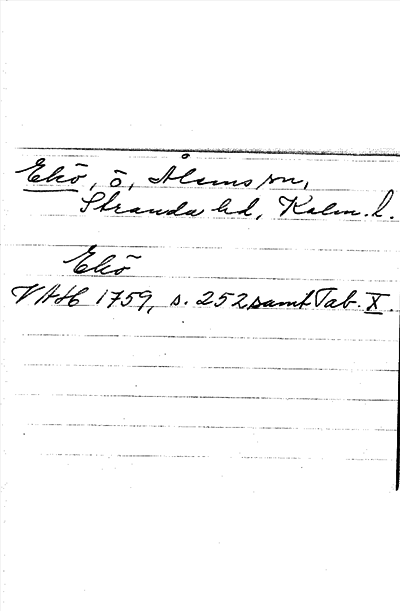 Ekö, ö, Ålems sn,
Stranda hd, Kalm. l.
Ekö
VAH 1759, s. 252 samt Tab. X.